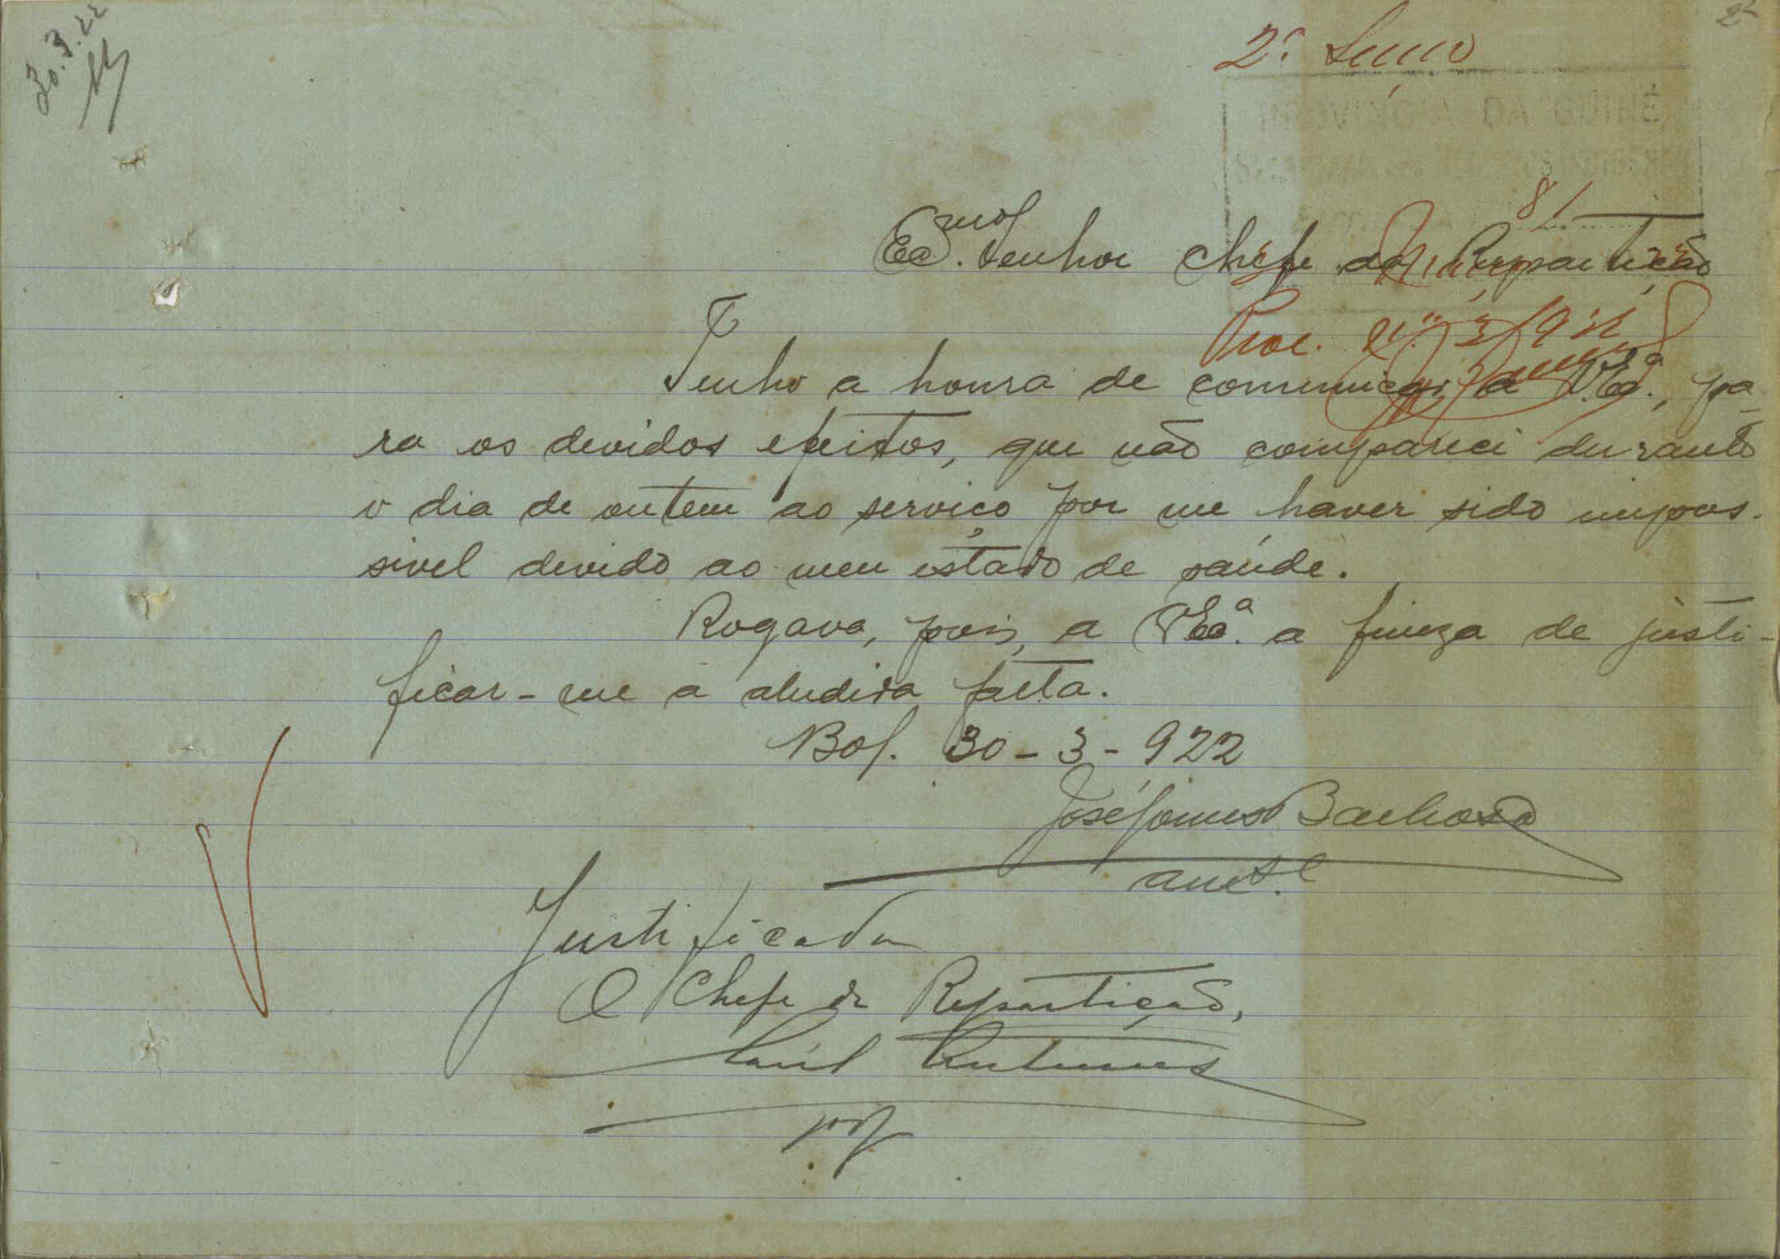 30.3.22
2ª
Exmo. Senhor Chefe da Repartição
Proc.
Tenho a honra de comunicar a V. Exª., pa-
ra os devidos efeitos, que não compareci durante
o dia de ontem ao serviço por me haver sido impos-
sivel devido ao meu estado de saúde.
Rogava, pois, a V. Exª. a fineza de justi-
ficar-me a aludida falta.
30-3-922
José Gomes Barbosa
Justificada
O Chefe da Repartição,
Raúl Antunes